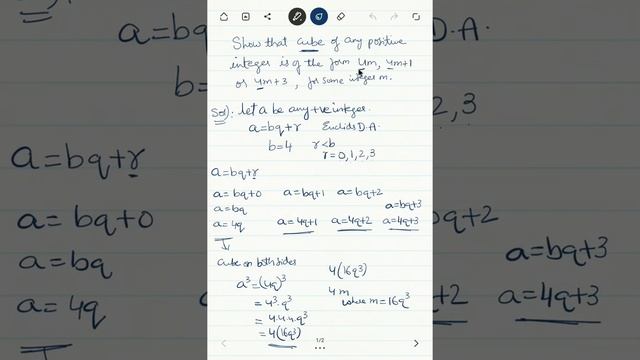 Show that cube of any positive
integer is of the form 4m, 4m+1
or 4m+3, for some integer m.
Sol): let a be any +ve integer.
a=bq+r Euclids D.A.
b=4 r<b
r=0,1,2,3
a=bq+r
a=bq+0 a=bq+1 a=bq+2
a=bq a=bq+3
a=4q a=4q+1 a=4q+2 a=4q+3
Cube on both sides
a³=(4q)³
=4³.q³
=4.4.4.q³
=4(16q³)
4(16q³)
4m
where m=16q³
1/2
a=
b=
a=bq+r
a=bq+0
a=bq
a=4q
D.A.
2,3
bq+2
a=bq+3
q+2 a=4q+3